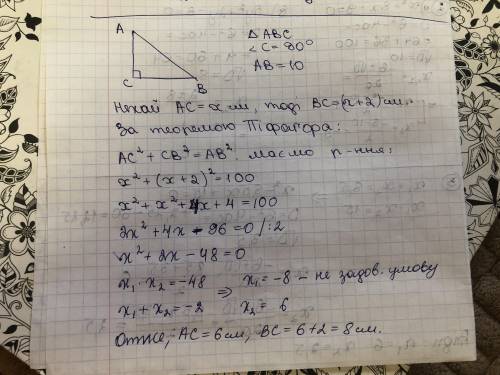 A
C
B
Δ ABC
∠C = 90°
AB = 10
Нехай AC = x см, тоді BC = (x+2) см.
За теоремою Піфагора:
AC² + CB² = AB². маємо р-ння:
x² + (x+2)² = 100
x² + x² + 4x + 4 = 100
2x² + 4x - 96 = 0 /:2
x² + 2x - 48 = 0
x₁ · x₂ = -48 ⇒ x₁ = -8 - не задов. умову
x₁ + x₂ = -2 x₂ = 6
Отже, AC = 6 см, BC = 6+2 = 8 см.